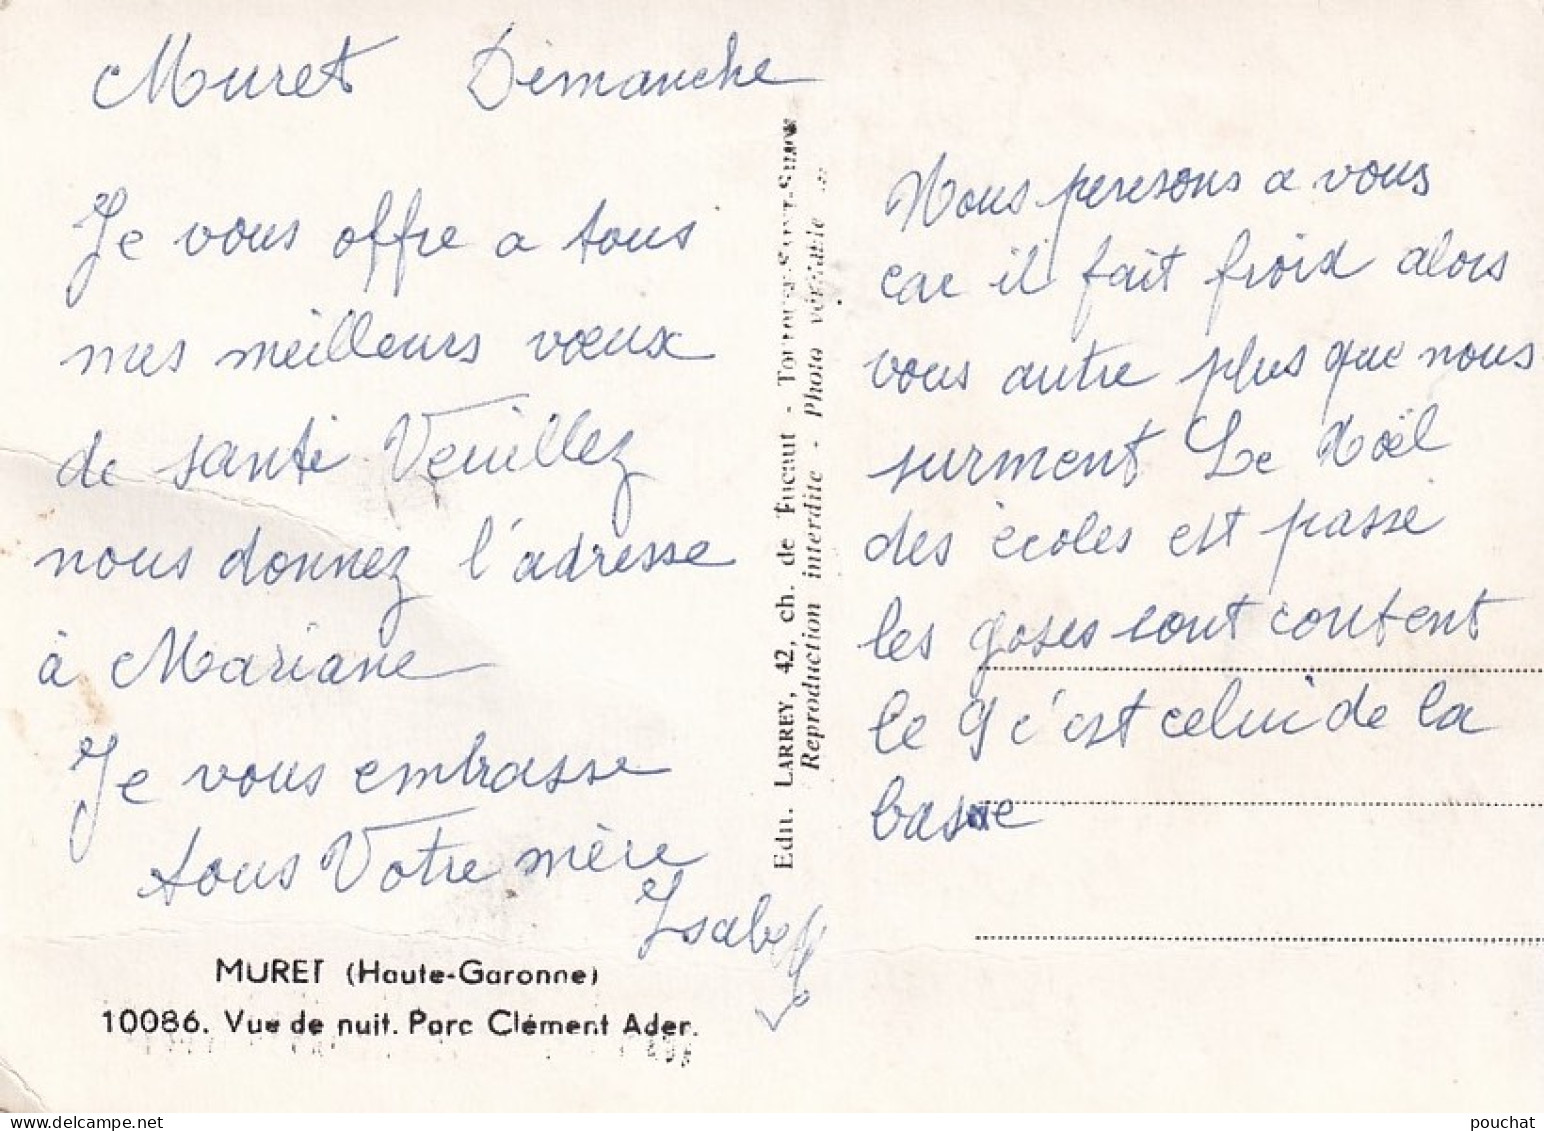 Muret Dimanche
Je vous offre a tous
mes meilleurs vœux
de santé Veuillez
nous donnez l'adresse
à Mariane
Je vous embrasse
tous Votre mère
Isabelle
MURET (Haute-Garonne)
10086. Vue de nuit. Parc Clément Ader.
Edn. LARREY, 42, ch. de Tucaut - TOULOUSE-SAINT-SIMON
Reproduction interdite - Photo véritable
Nous peresons a vous
car il fait froid alors
vous autre plus que nous
surment Le Noël
des écoles est passé
les goses sont content
le 9 c'est celui de la
base
pouchat